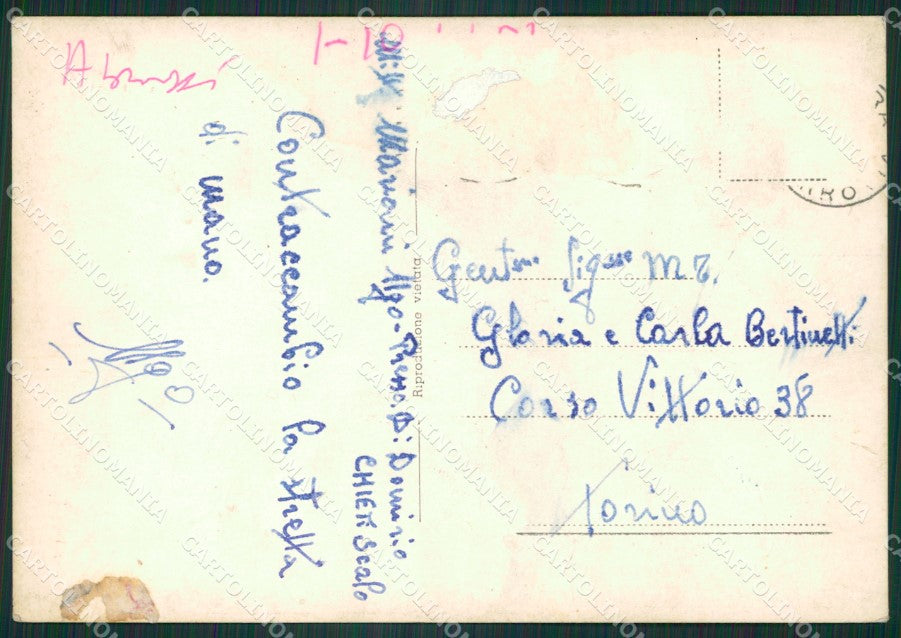 Abruzzi
1-10
Mitt. Marioni Ugo - Presso Di Domizio
CHIETI Scalo
Contraccambio la stretta
di mano.
Ugo
Riproduzione vietata
Gent.me Sig.ne
Gloria e Carla Bertinetti
Corso Vittorio 38
Torino
CARTOLINOMANIA